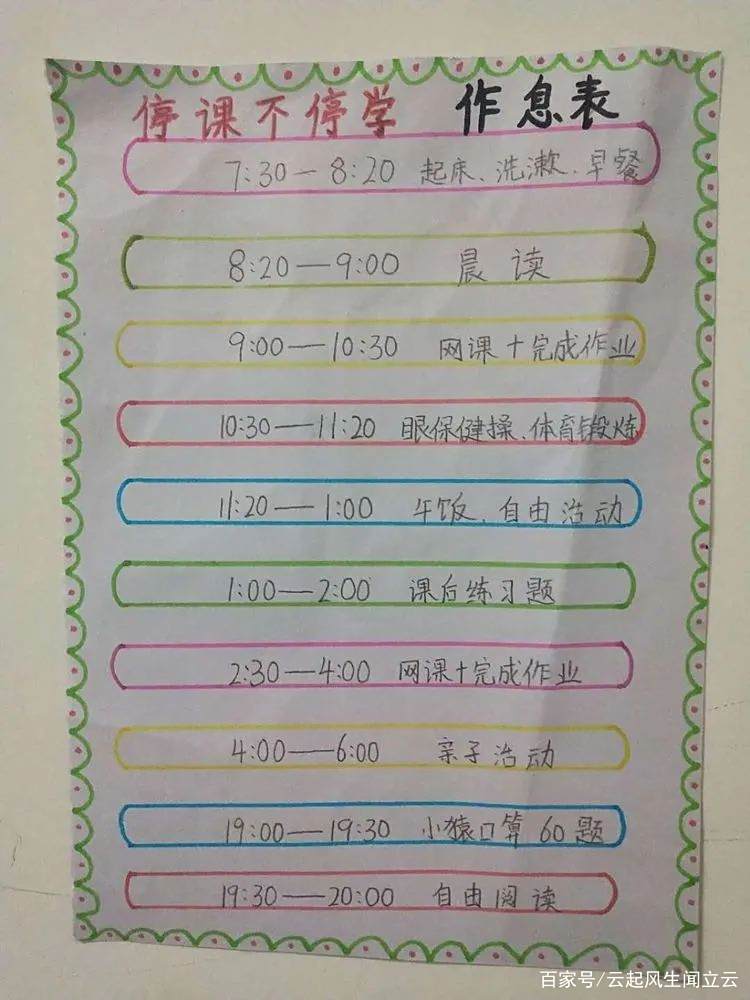 停课不停学 作息表
7:30—8:20 起床、洗漱、早餐
8:20—9:00 晨读
9:00—10:30 网课+完成作业
10:30—11:20 眼保健操、体育锻炼
11:20—1:00 午饭、自由活动
1:00—2:00 课后练习题
2:30—4:00 网课+完成作业
4:00—6:00 亲子活动
19:00—19:30 小猿口算60题
19:30—20:00 自由阅读
百家号/云起风生闻立云